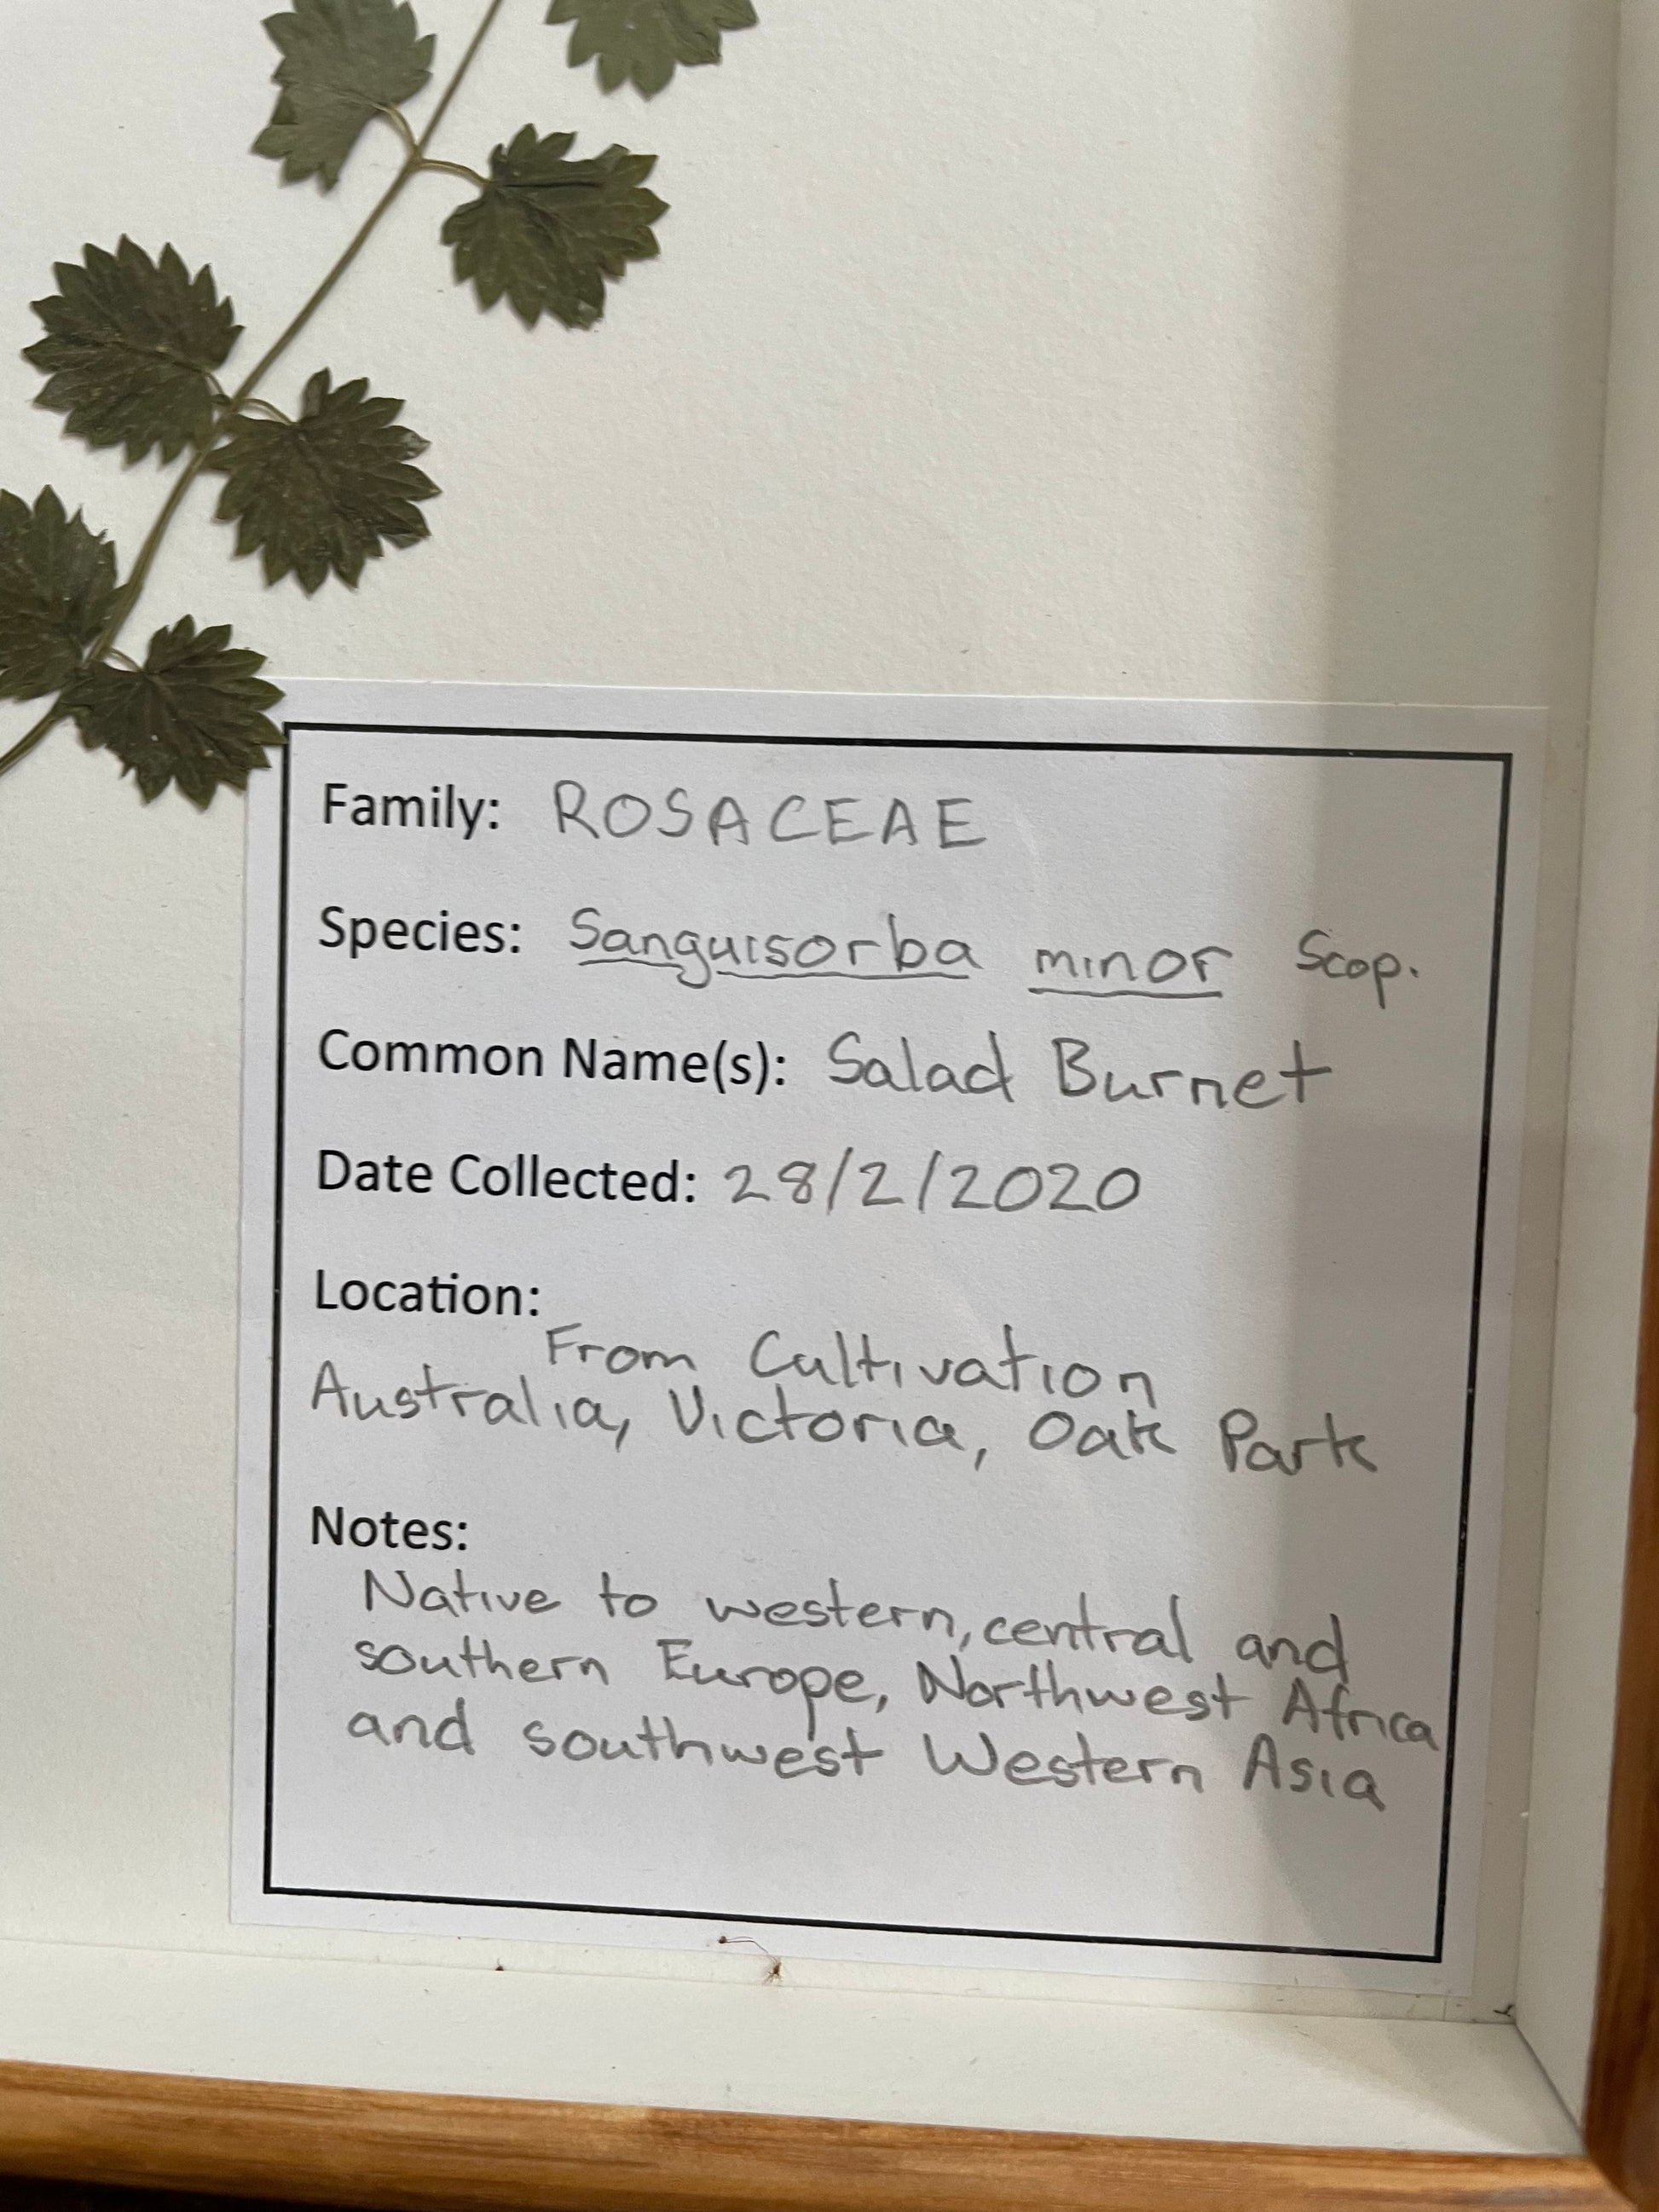 Family: ROSACEAE
Species: Sanguisorba minor Scop.
Common Name(s): Salad Burnet
Date Collected: 28/2/2020
Location:
From Cultivation
Australia, Victoria, Oak Park
Notes:
Native to western, central and
southern Europe, Northwest Africa
and southwest Western Asia